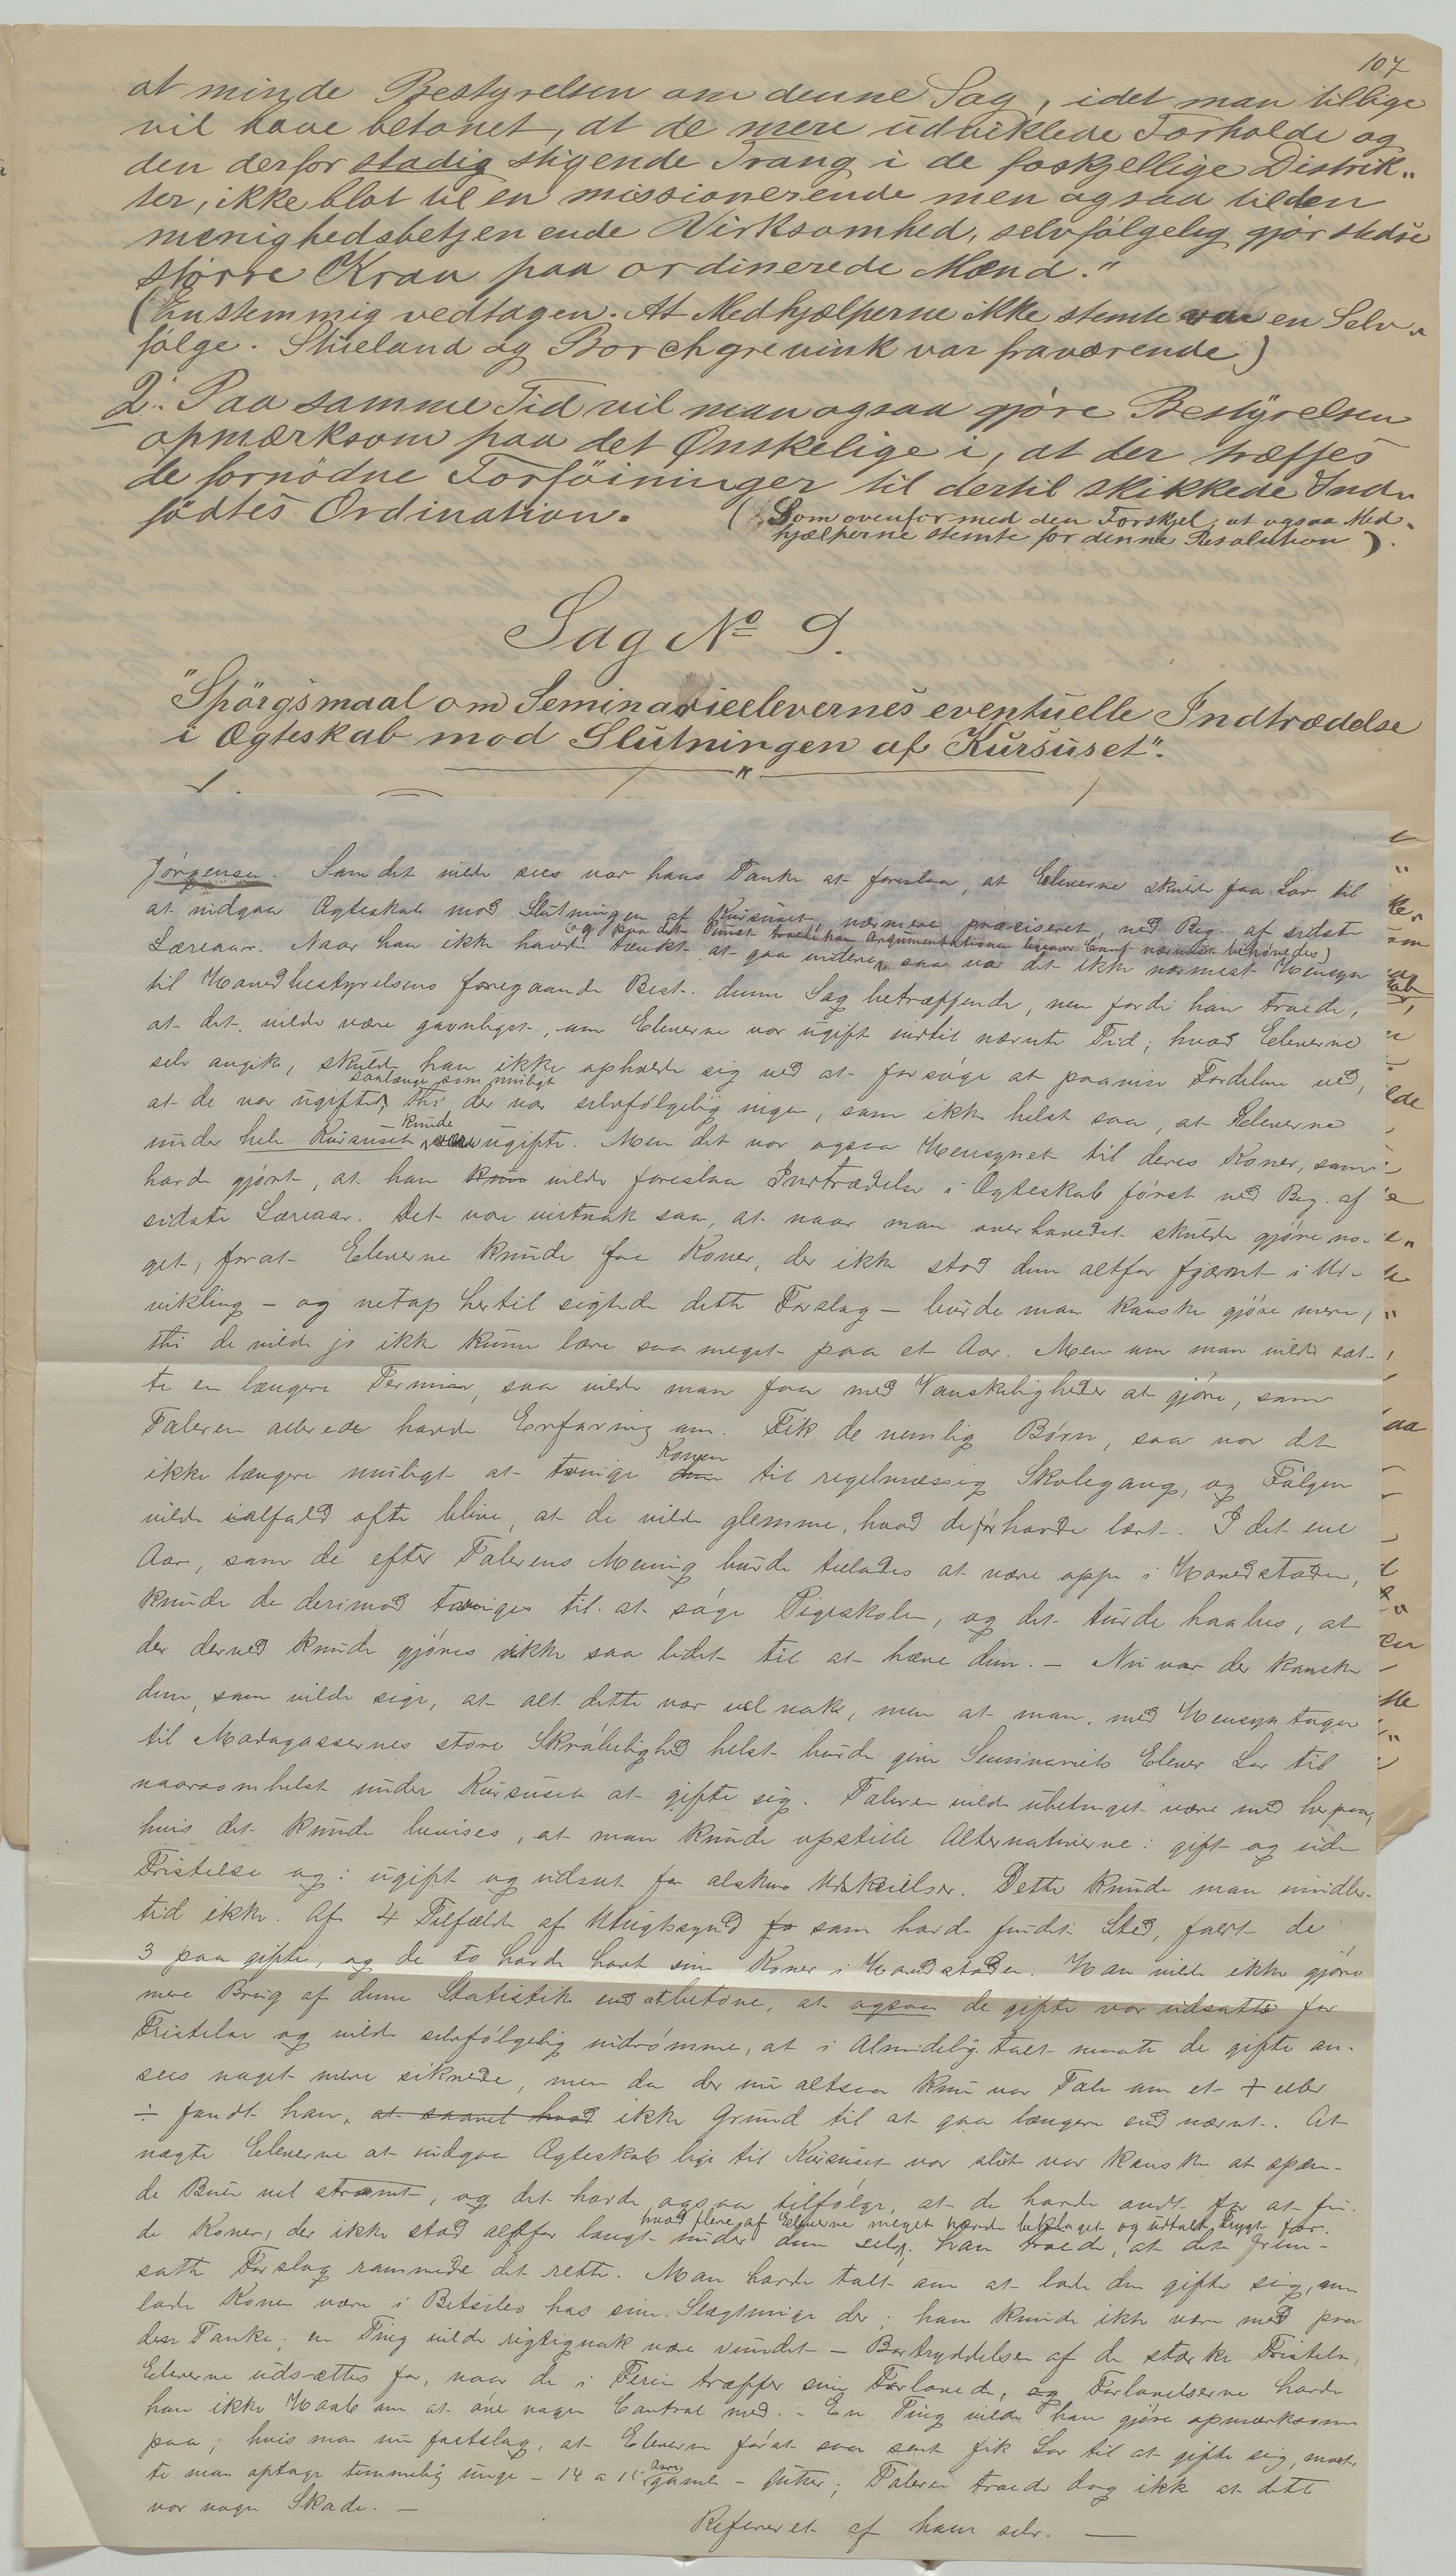 107
at minde Bestyrelsen om denne Sag, idet man tillige
vil have betonet, at de mere udviklede Forholde og
den derfor stadig stigende Trang i de foskjellige Distrik„
ter, ikke blot til en missionerende men ogsaa til den
menighedsbetjenende Virksomhed, selvfölgelig gjör stedse
större Krav paa ordinerede Mænd."
(Enstemmig vedtagen. At Medhjælperne ikke stemte var en Selv„
fölge. Stueland og Borchgrevink var fraværende)
2. Paa samme Tid vil man ogsaa gjöre Bestyrelsen
opmærksom paa det Ønskelige i, at der træffes
de fornödne Forföininger til dertil skikkede Ind„
födtes Ordination.
(Som ovenfor med den Forskjel, at ogsaa Med„
hjælperne stemte for denne Resolution).
Sag No 9.
"Spörgsmaal om Seminarieelevernes eventuelle Indtrædelse
i Ægteskab mod Slutningen af Kursuset".
Jörgensen. Som det vilde sees var hans Tanke at foreslaa, at Eleverne skulde faa Lov til
at indgaa Ægteskab mod Slutningen af Kursuset, nærmere præciseret, ved Beg. af sidste
Læreaar. Naar han ikke havde tænkt at gaa videre, (og paa det Punct troede han Argumentationen ligeover Conf. nærmest behövedes) saa var det ikke nærmest Hensyn
til Hovedbestyrelsens foregaaende Best. denne Sag betræffende, men fordi han troede,
at det vilde være gavnligst, om Eleverne var ugift indtil nævnte Tid; hvad Eleverne
selv angik, skulde han ikke opholde sig ved at forsöge at paavise Fordelene ved,
at de var ugifte saalænge som muligt, thi der var selvfölgelig ingen, som ikke helst saa, at Eleverne
under hele Kursuset kunde være ugifte. Men det var ogsaa Hensynet til deres Koner, som
havde gjört, at han kun vilde foreslaa Indtrædelse i Ægteskab först ved Beg. af
sidste Læreaar. Det var vistnok saa, at naar man overhovedet skulde gjöre no-
get, forat Eleverne kunde faa Koner, der ikke stod dem altfor fjærnt i Ud-
vikling – og netop hertil sigtede dette Forslag – burde man kanske gjöre mere,
thi de vilde jo ikke kunne lære saa meget paa et Aar. Men om man vilde sæt-
te en længere Termin, saa vilde man faa med Vanskeligheder at gjöre, som
Taleren allerede havde Erfaring om. Fik de nemlig Börn, saa var det
ikke længere muligt at tvinge Konen til regelmæssig Skolegang, og Fölgen
vilde ialfald ofte blive, at de vilde glemme, hvad de för havde lært. I det ene
Aar, som de efter Talerens Mening burde tillades at være oppe i Hovedstaden,
kunde de derimod tvinges til at söge Pigeskolen, og det turde haabes, at
der derved kunde gjöres ikke saa lidet til at hæve dem. – Nu var der kanske
dem, som vilde sige, at alt dette var vel nok, men at man, med Hensyntagen
til Madagassernes store Skröbelighed helst burde give Seminariets Elever Lov til
naarsomhelst under Kursuset at gifte sig. Taleren vilde ubetinget være med herpaa,
hvis det kunde bevises, at man kunde opstille Alternativerne: gift og uden
Fristelse og: ugift og udsat for alskens Udskeielser. Dette kunde man imidler-
tid ikke. Af 4 Tilfælde af Utugtssynd fo som havde fundet Sted, faldt de
3 paa gifte, og de to havde havt sine Koner i Hovedstaden. Han vilde ikke gjöre
mere Brug af denne Statistik end at betone, at ogsaa de gifte var udsatte for
Fristelse og vilde selvfölgelig indrömme, at i Almindelig talt maatte de gifte an-
sees noget mere sikrede, men da der nu altsaa kun var Tale om et + eller
÷ fandt han, at saavel hvad ikke Grund til at gaa længere end nævnt. At
nægte Eleverne at indgaa Ægteskab lige til Kursuset var slut var kanske at spæn-
de Buen vel stramt, og det havde ogsaa tilfölge, at de havde ondt for at fin-
de Koner, der ikke stod altfor langt under dem selv, hvad flere af Eleverne meget havde beklaget og udtalt Frygt for. Han troede, at det frem-
satte Forslag rammede det rette. Man havde talt om at lade dem gifte sig, men
lade Konen være i Betsileo hos sine Slægtninge der; han kunde ikke være med paa
den Tanke; en Ting vilde rigtignok være vundet – Bortryddelsen af de stærke Fristelser,
Eleverne udsættes for, naar de i Ferien træffer sine Forlovede, og Forlovelserne havde
han ikke Haab om at öve nogen Control med. – En Ting vilde han gjöre opmærksom
paa; hvis man nu fastslog, at Eleverne först saa sent fik Lov til at gifte sig, maat-
te man optage temmelig unge – 14 a 15 Aar gamle – Gutter; Taleren troede dog ikke at dette
var nogen Skade. –
Refereret af ham selv. –